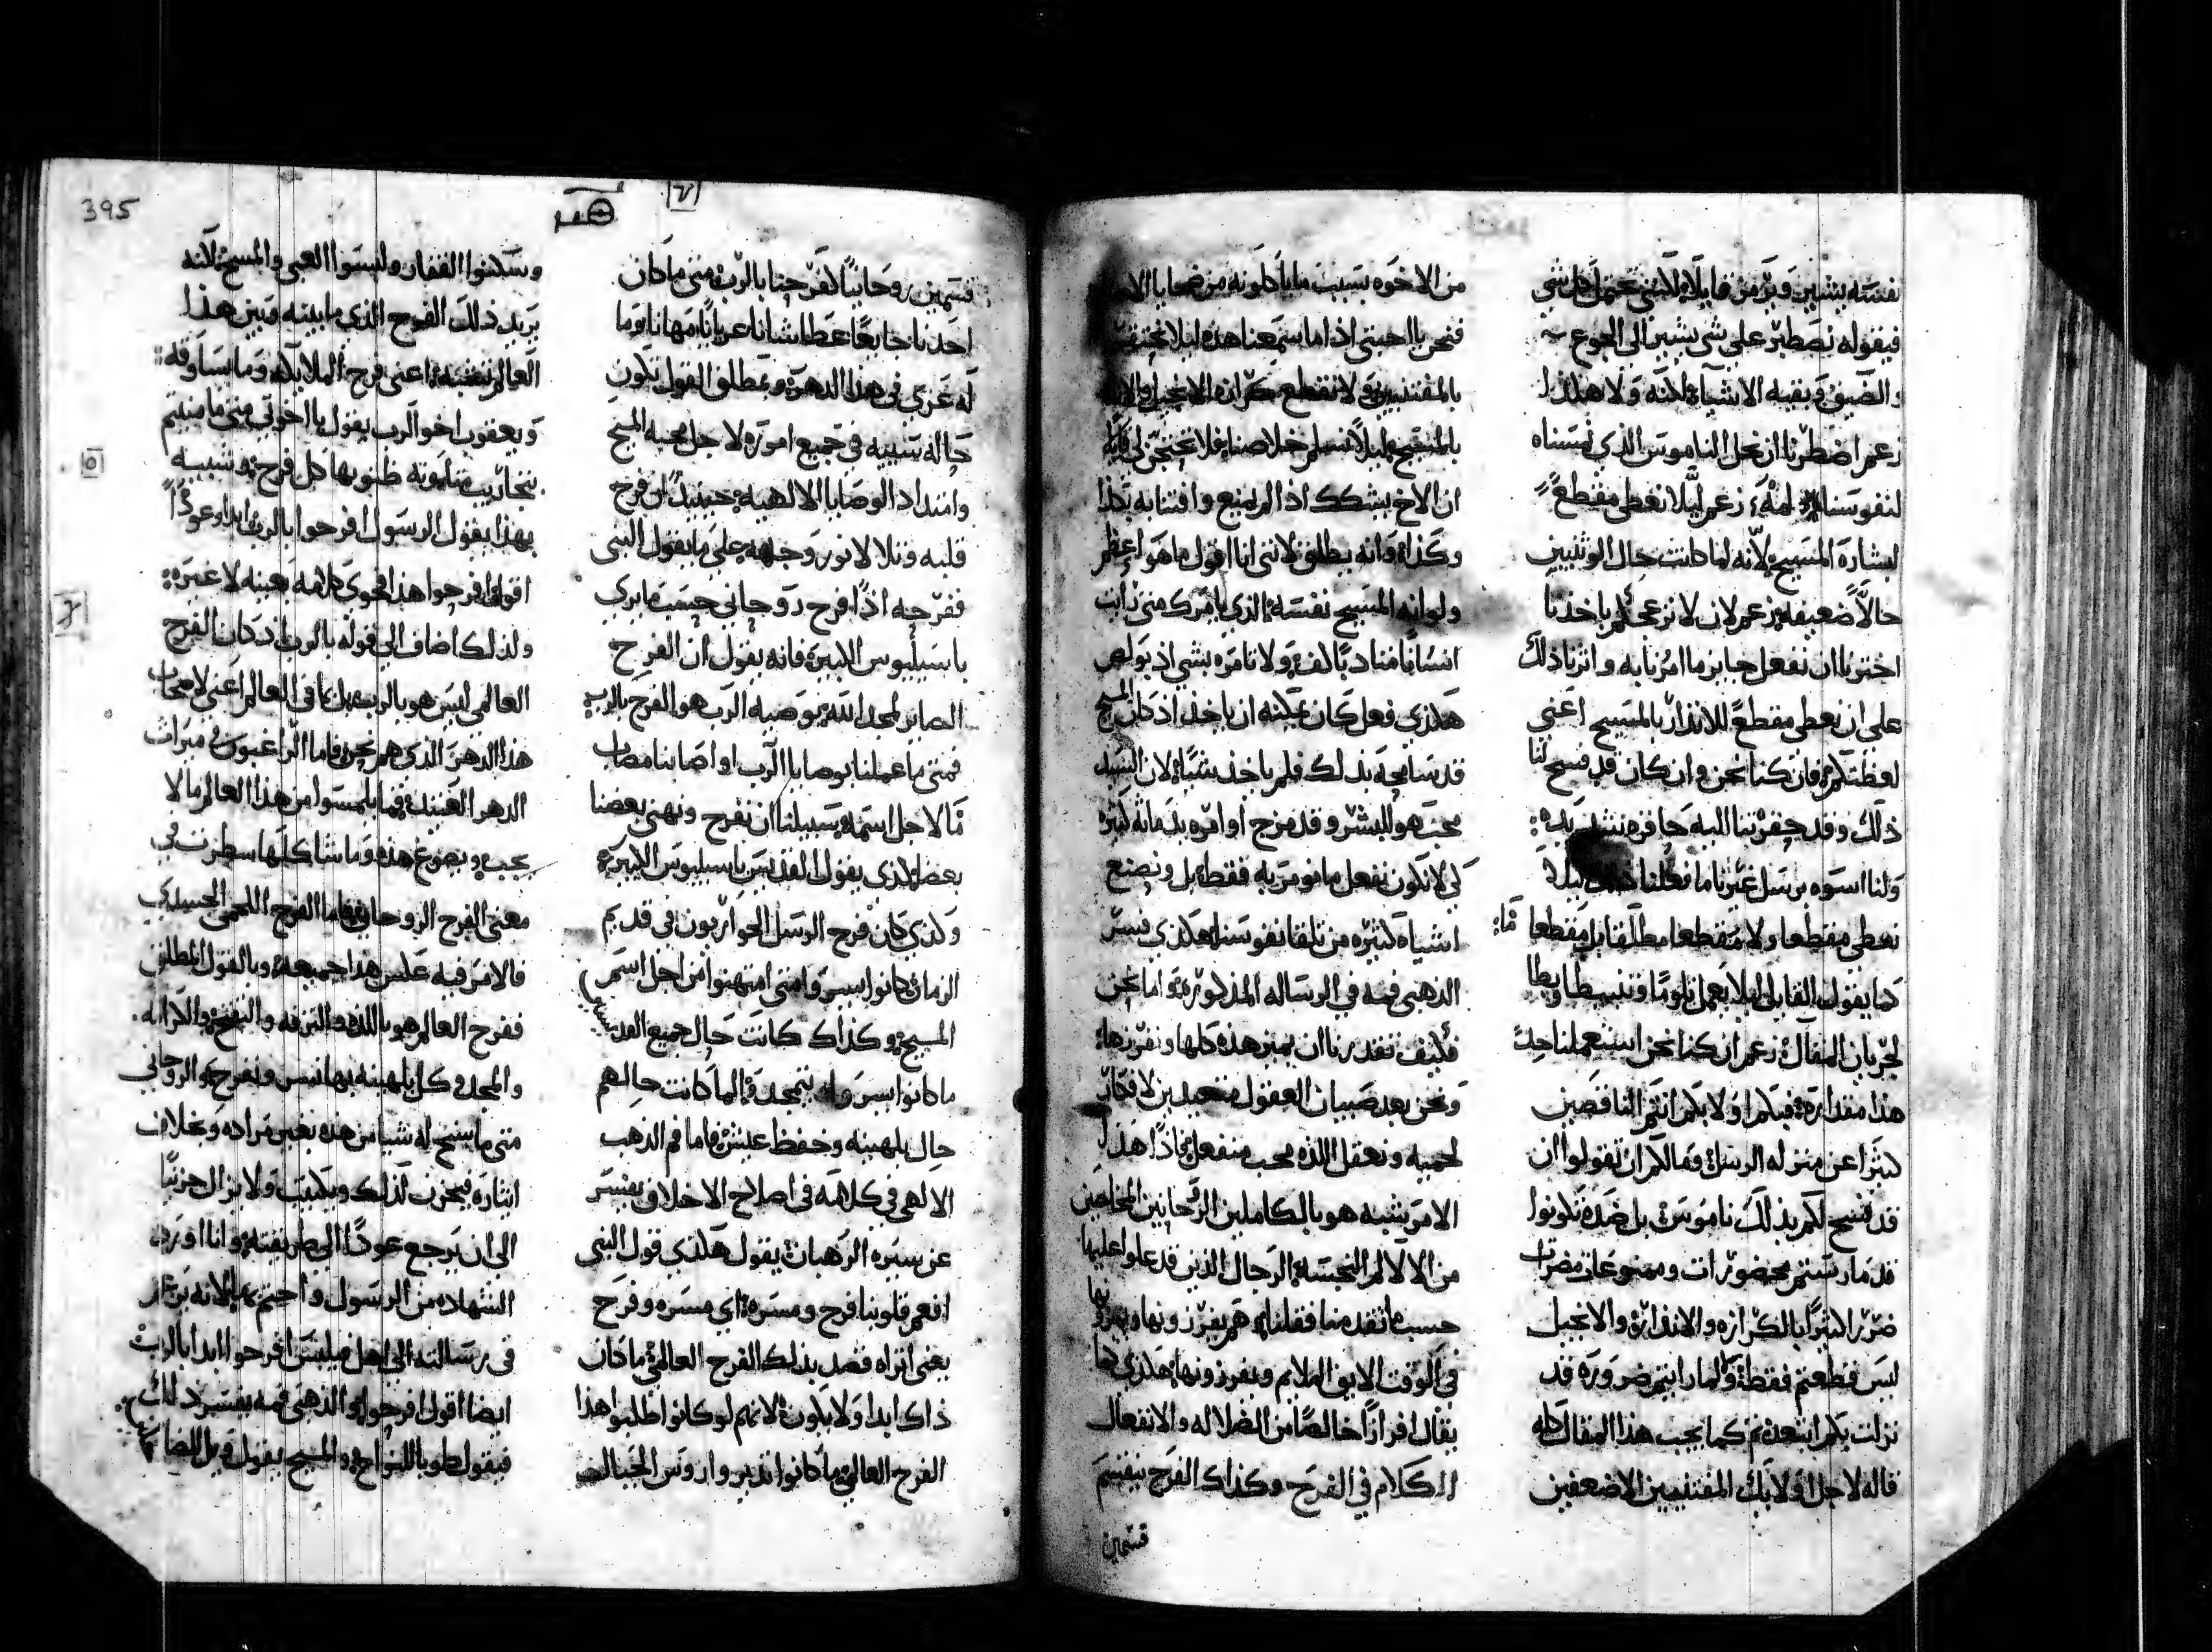 نفسه يشير وبرّ من قايلاً لانني نحتمل كل شي
فيقوله نصطبر على شي يشير الى الجوع
والضيق وبقيه الاشياء لكنه ولا هكذا
زعم اضطرنا ان نحل الناموس الذي سنناه
لنفوسنا لمَه، زعم ليلا نعطي مقطعاً
لبشارة المسيح لانه لما كانت حال الوثنيين
حالاً ضعيفه زعم لان لا نزعجكم ياخذنا
اخترنا ان نفعل جايز ما امرنا به واثرنا ذلك
على ان نعطي مقطعاً للانذار بالمسيح اعني
لعظتكم فان كنا نحن وان كان قد فسح لنا
ذلك وقد حفزتنا اليه حافزه شديده
ولنا اسوه برسل غيرنا ما فعلنا ليلا
نعطي مقطعا ولا مقطعا مطلقا بل مقطعا مّا
كما يقول القايل ليلا نعمل تلوما وتثبيطا وبطا
لجريان المقال زعم ان كنا نحن استعملنا حدّ
هذا مقداره فيكم اولا بكم انتم الناقصين
كثيرا عن منزله الرسل ومالكم ان تقولوا ان
قد فسح لكم بذلك ناموس بل ضده تكونوا
قد مارستم محضورات وممنوعات مضرات
ضررا كثيرا بالكرازه والانذار والانجيل
ليس قطعتم فقط ولما رايتم ضروره قد
نزلت بكم ابتعدتم كما يجب هذا المقال كله
قاله لاجل اولايك المقتنيين الاضعفين
من الاخوه بسبب ما ياكلونه من ضحايا
فنحن يا احبتي اذا ما سمعنا هذه ليلا نحتقر
بالمقتنيين ولا نقطع كرازة الانجيل
بالمسيح ليلا نسلم خلاصنا فلا تحتجّ لي قايلا
ان الاخ يشكك اذا لم يمنع وافتنانه بكذا
وكذا وانه يطلق لانني انا اقول ما هو اعظم
ولو انه المسيح نفسه الذي يامرك متى رايت
انسانا متاديا لاف ولا تامره بشي اذ بولص
هكذي فعل كان يمكنه ان ياخذ اذ كان المسيح
قد سامحه بذلك فلم ياخذ شيئا لان السيد
محب هو للبشر وقد مزج اوامره بدماثه كثيره
كي لا نكون نفعل ما نومر به فقط بل ونصنع
اشياء كثيره من تلقا نفوسنا هكذي فسر
الذهبي فمه في الرساله المذكوره واما نحن
فكيف تقدرنا ان نميز هذه كلها ونفرزها
ونحن بعد صبيان العقول متعبدين لافكار
لحميه ونعقل اللذه محب منفعل فاذًا هذا
الامر يشبه هو بالكاملين الروحانيين المخلصين
من الالام النجسه الرجال الذين قد علوا عليها
حسب ما تقدمنا فقلنا هم يفرزونها ويميزونها
في الوقت الايق الملايم ويفرزونها هكذي كما
يقال افرازا خالصا من الضلاله والانفعال
الكلام في الفرح وكذاك الفرح ينقسم
قسمين
395
قسمين روحانيا لا فرحنا بالرب متى ما كان
احدنا جايعا عطشانا عريانا مهانا وما
له عزي في هذا الدهر وبمطلق القول تكون
حاله شبيه في جميع اموره لاجل محبه المسيح
وامتداد الوصايا الالهيه حينيذ ان فرح
قلبه وتلالا نور وجهه على ما يقول النبي
ففرحه اذًا فرح روحاني حسب ما يري
باسيليوس الكبير فانه يقول ان الفرح
الصاير لمجد الله بوصيه الرب هو الفرح بالرب
فمتى ما عملنا بوصايا الرب او اصابنا مصاب
مّا لاجل اسمه سبيلنا ان نفرح ونهني بعضنا
بعضا كذي يقول القديس باسيليوس الكبير
وكذي كان فرح الرسل الحواريون في قديم
الزمان كانوا يسروا متى امتهنوا من اجل اسم
المسيح وكذاك كانت حال جميع القديسين
ما كانوا يسروا بتمجد ولما كانت حالهم
حال بلهنيه وخفظ عيش فاما فم الذهب
الالهي في كلامه في اصلاح الاخلاق يفسر
عن سيره الرهبان يقول هكذي قول النبي
افعم قلوبنا فرح ومسره اي مسره وفرح
يعني اتراه قصد بذلك الفرح العالمي ما كان
ذاك ابدا ولا يكون لانهم لو كانوا طلبوا هذا
الفرح العالمي ما كانوا تدبروا روس الجبال
وسكنوا القفار ولبسوا العبي والمسوح لانه
يريد ذلك الفرح الذي ما بينه وبين هذا
العالم نسبه اعني فرح الملايكه وما ساوقه
ويعقوب اخو الرب يقول يا اخوتي متى ما منيتم
بتجاريب متلونه ظنو بها كل فرح وشبيه
بهذا يقول الرسول افرحوا بالرب ابدا وعودًا
اقول افرحوا هذا فحوى كلامه بعينه لا غيره
ولذلك اضاف الى قوله بالرب اذ كان الفرح
العالمي ليس هو بالرب بل بما في العالم اعني لاصحاب
هذا الدهر الذي هم نحن فاما الراغبون في ميراث
الدهر العتيد فما يلمسوا من هذا العالم ما لا
يجب ويصوغ هذه وما شاكلها سطرت في
معنى الفرح الروحاني فاما الفرح اللحمي الجسداني
فالامر فيه عكس هذا جميعه وبالقول المطلق
ففرح العالم هو باللذه والترفه والتنعم والكرامه
والمجد وكل بلهنيه بها نسر ونفرح والروحاني
متى ما سنح له شيا من هذه بغير مراده وبخلاف
ايثاره فيحزن لذلك ويكتيب ولا يزال حزينا
الى ان يرجع عودًا الى طريقته وانا اورد
الشهاده من الرسول واختم بها لانه يرعز
في رسالته الى اهل فيلبس افرحوا ابدا بالرب
ايضا اقول افرحوا والذهبي فمه يفسر ذلك
فيقول طوبا للنواح والمسيح يقول ويل للضاحكين